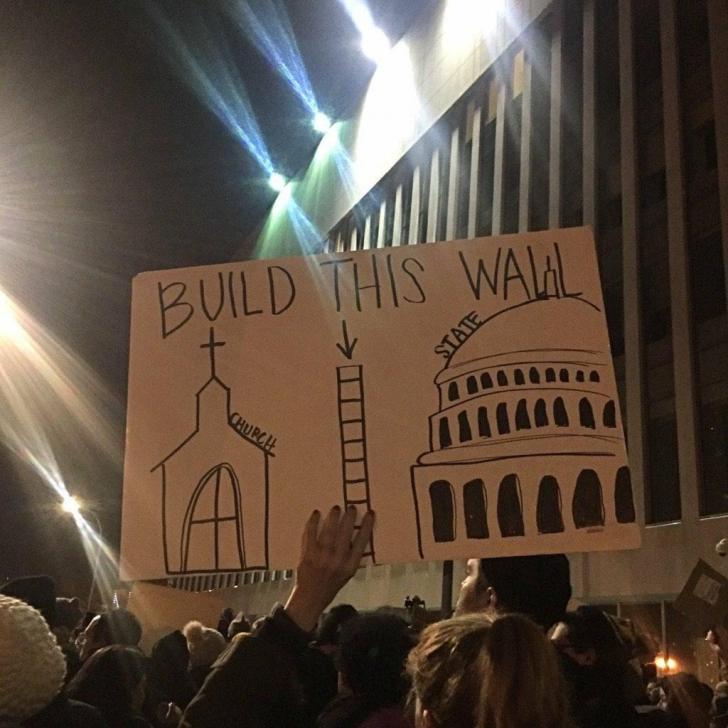 BUILD THIS WALL
STATE
CHURCH